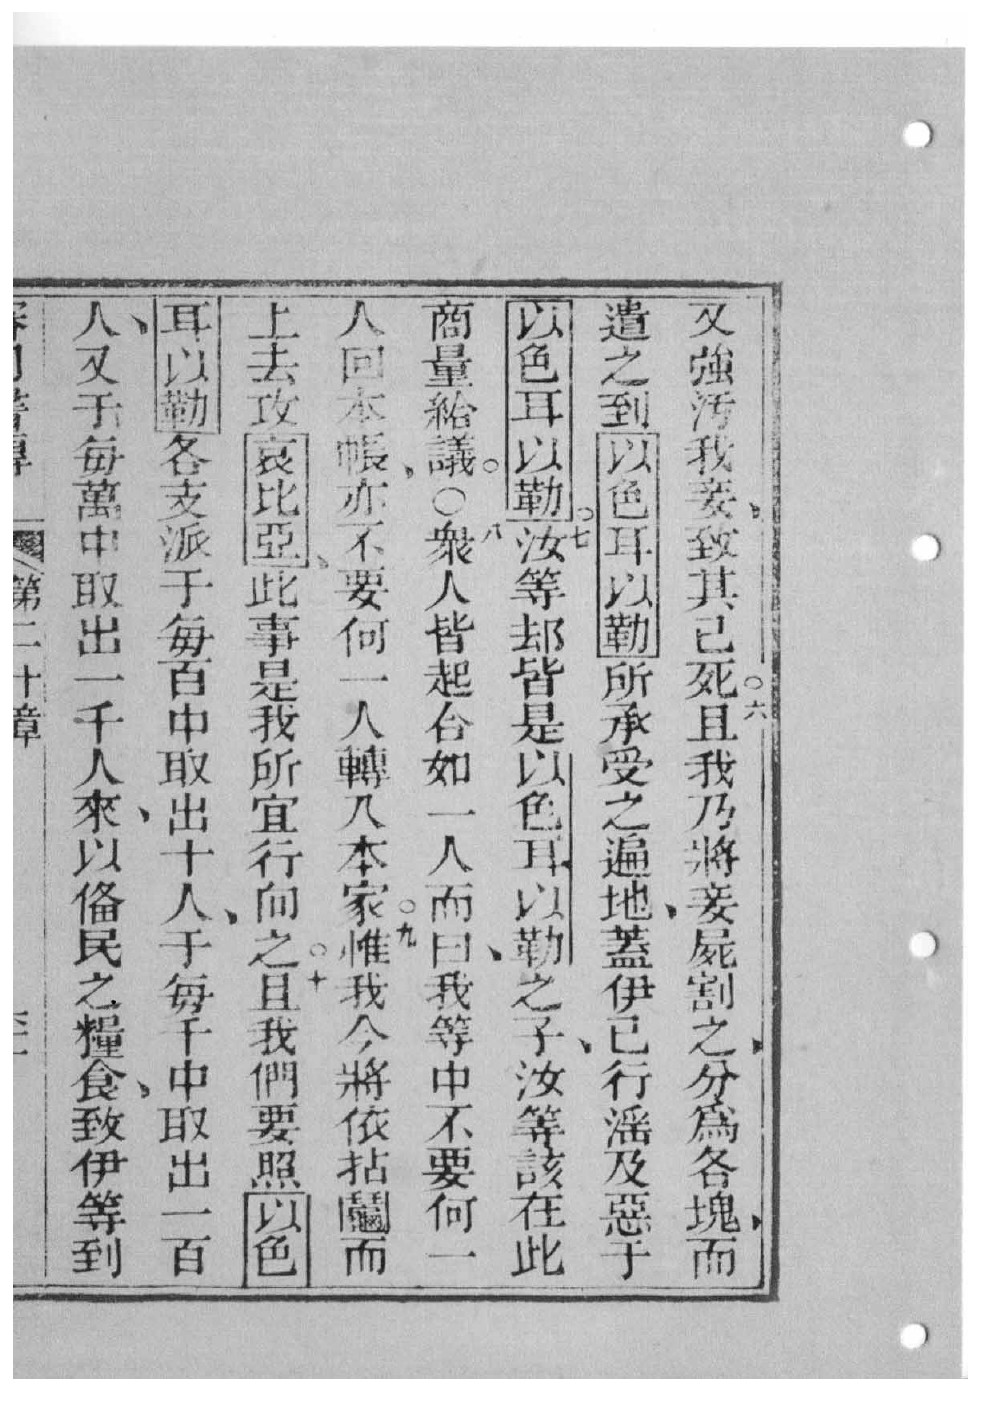 又強污我妾致其已死六且我乃將妾屍割之分爲各塊而
遣之到以色耳以勒所承受之遍地蓋伊已行滛及惡于
以色耳以勒七汝等却皆是以色耳以勒之子汝等該在此
商量給議○八衆人皆起台如一人而曰我等中不要何一
人回本帳亦不要何一人轉入本家九惟我今將依拈鬮而
上去攻哀比亞此事是我所宜行向之十且我們要照以色
耳以勒各支派于每百中取出十人于每千中取出一百
人又于每萬中取出一千人來以俻民之糧食致伊等到
第二十章